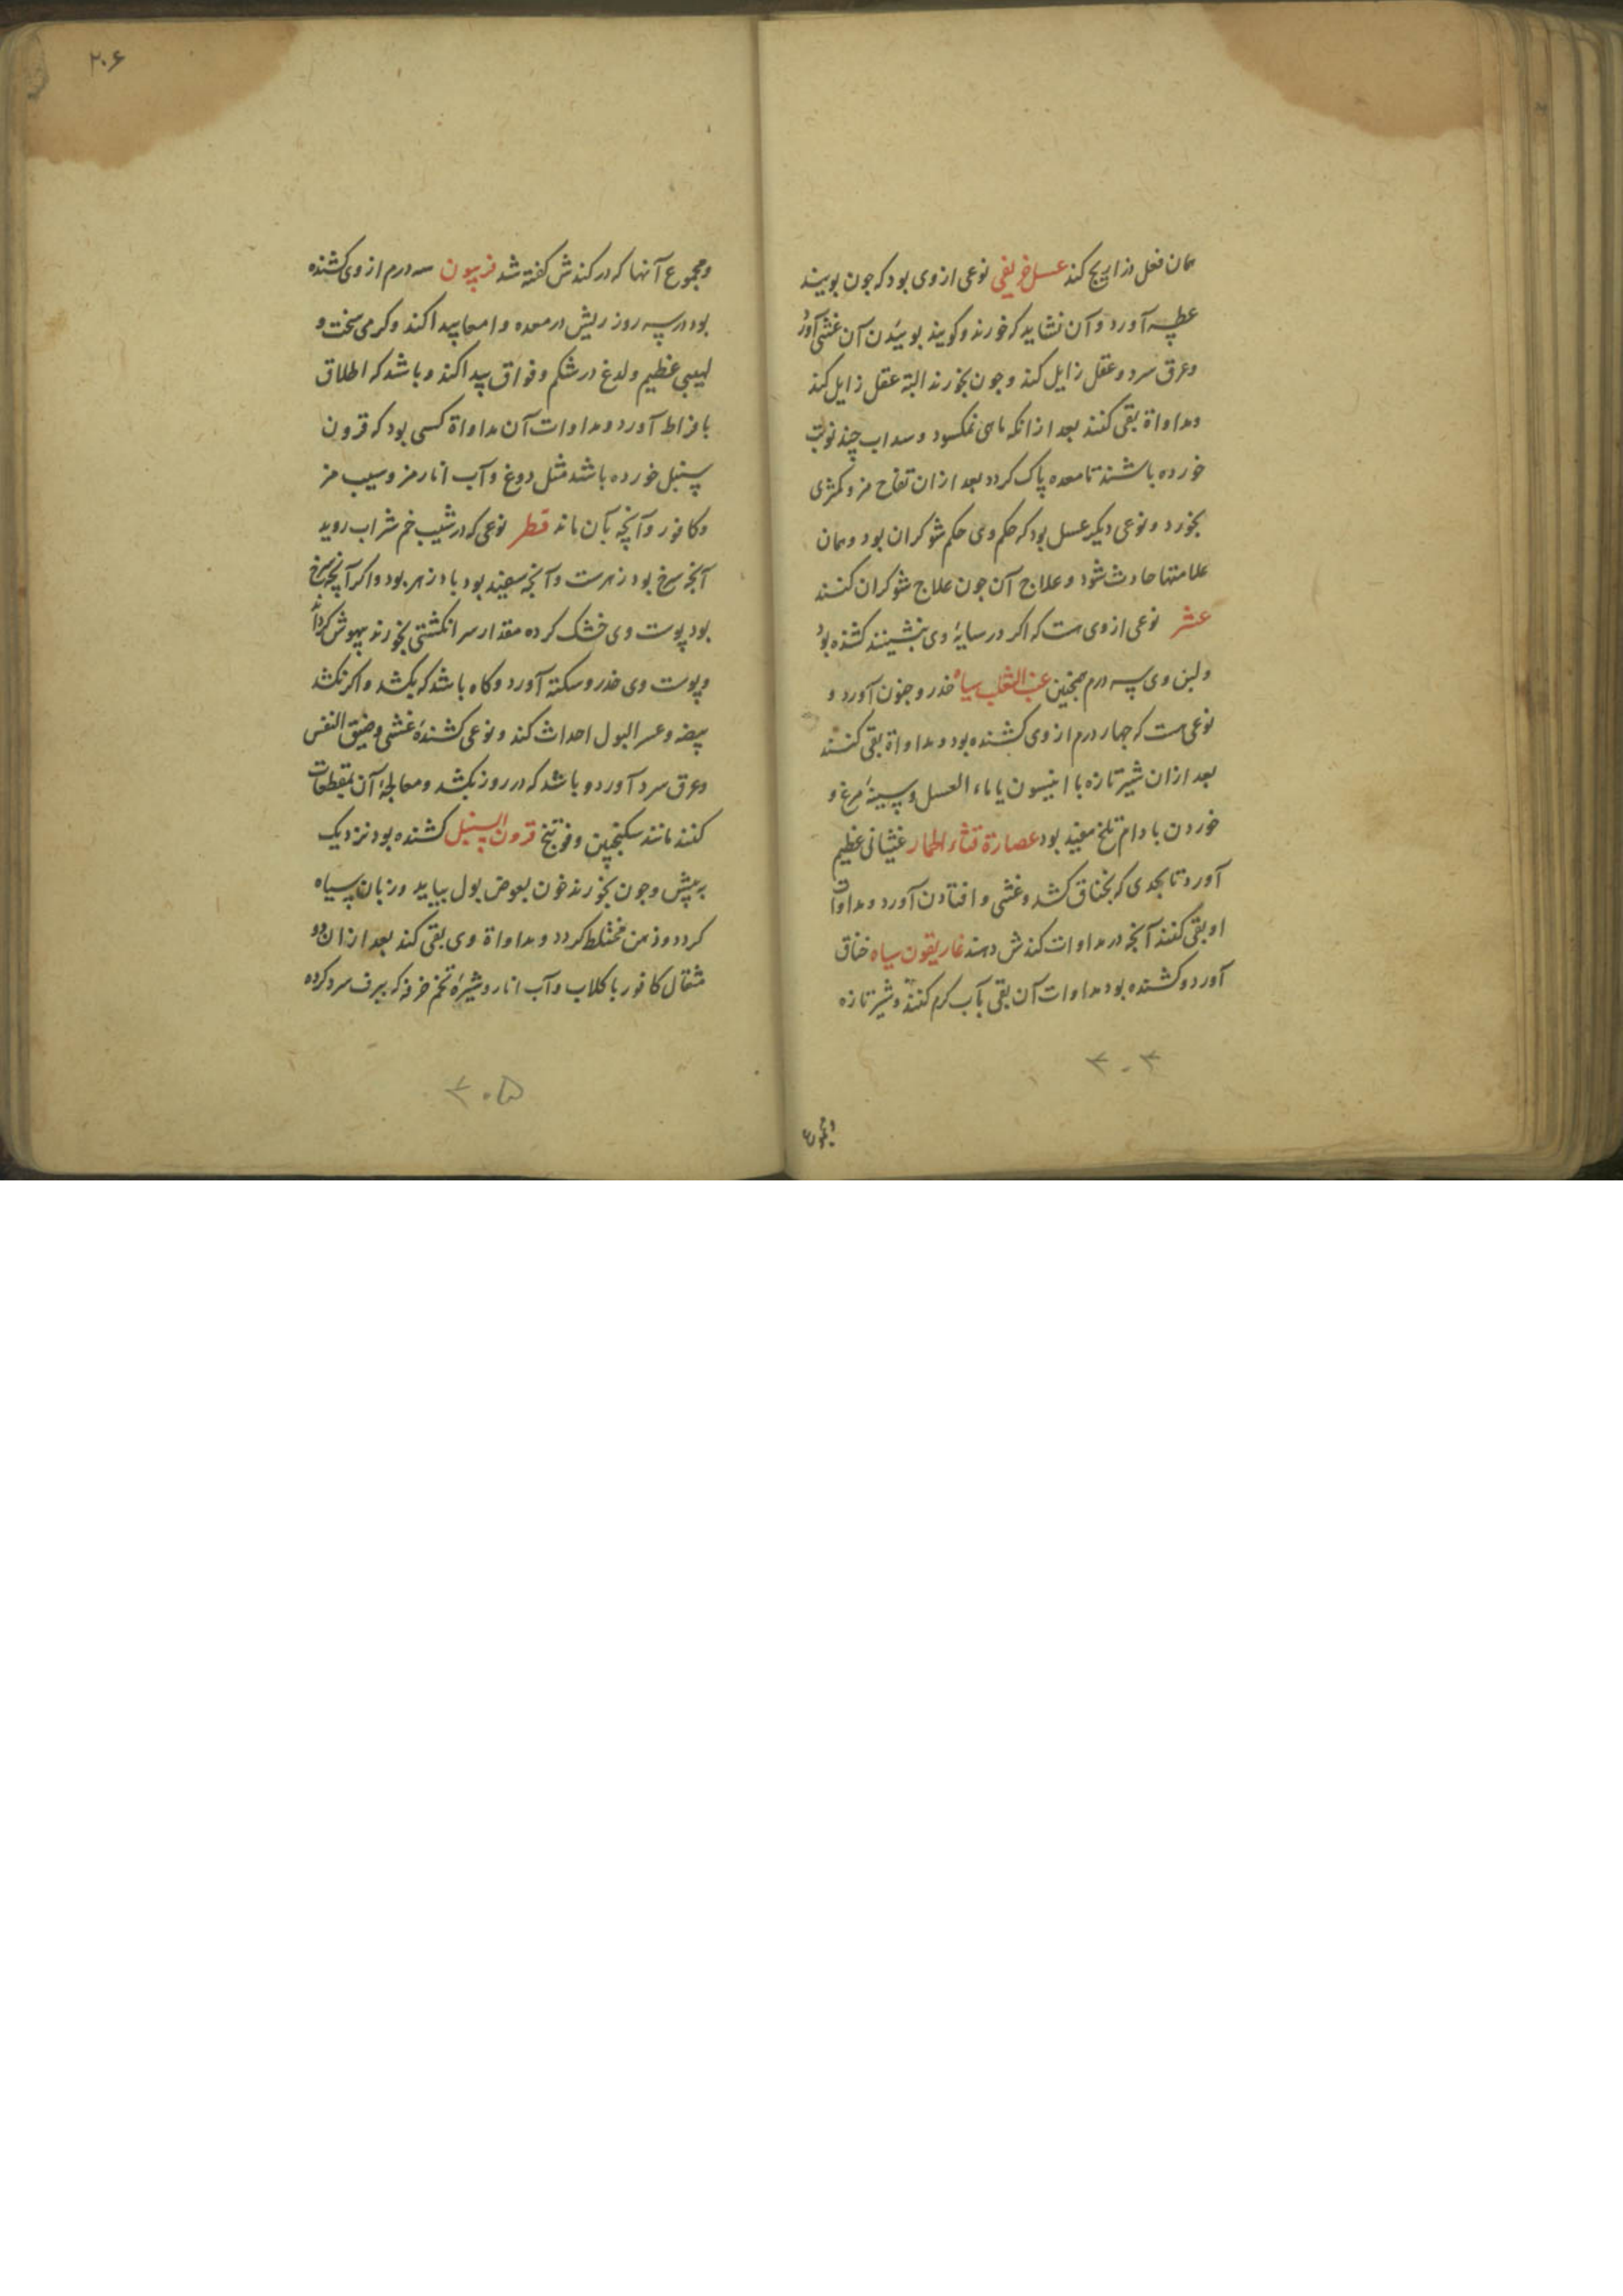 همان فعل ذراریح کند عسل خریفی نوعی از وی بود که چون بویند
عطسه آورد و آن نشاید که خورند و کویند بوئیدن آن غشی آورد
و عرق سرد و عقل زایل کند و چون بخورند البته عقل زایل کند
و مداواة بقی کنند بعد از انکه ماهی نمکسود و سداب چند نوبت
خورده باشند تا معده پاک کردد بعد از ان تفاح مز و کمثری
بخورد و نوعی دیکر عسل بود که حکم وی حکم شوکران بود و همان
علامتها حادث شود و علاج آن چون علاج شوکران کنند
عشر نوعی از وی هست که اکر در سایهٔ وی بنشینند کشنده بود
و لبن وی سه درم همچنین عنب الثعلب سیاه خدر و جنون آورد و
نوعی هست که چهار درم از وی کشنده بود و مداواة بقی کنند
بعد از ان شیر تازه با انیسون یا ماء العسل و سینهٔ مرغ و
خوردن بادام تلخ مفید بود عصارة قثاء الحمار غثیانی عظیم
آورد تا بحدی که بخناق کشد و غشی و افتادن آورد و مداوات
او بقی کنند آنچه در مداوات کندش دهند غاریقون سیاه خناق
آورد و کشنده بود مداوات آن بقی بآب کرم کنند و شیر تازه
۳۰۴
و مجموع
۲۰۶
و مجموع آنها که در کندش کفته شد فربیون سه درم از وی کشنده
بود در سه روز ریش در معده و امعا پیدا کند و کرمی سخت و
لهیبی عظیم و لدغ در شکم و فواق پیدا کند و باشد که اطلاق
بافراط آورد و مداوات آن مداواة کسی بود که قرون
سنبل خورده باشند مثل دوغ و آب انار مز و سیب مز
و کافور و آنچه بآن ماند قطر نوعی که در شیب خم شراب روید
آنچه سرخ بود زهرست و آنچه سفید بود بادزهر بود و اکر آنچه سرخ
بود پوست وی خشک کرده مقدار سر انکشتی بخورند بیهوش کرداند
و پوست وی خدر و سکته آورد و کاه باشد که بکشد و اکر نکشد
هیضه و عسر البول احداث کند و نوعی کشندهٔ غشی و ضیق النفس
و عرق سرد آورد و باشد که در روز بکشد و معالجهٔ آن بمقطعات
کنند مانند سکنجبین و فوتنج قرون السنبل کشنده بود نزدیک
به بیش و چون بخورند خون بعوض بول بیاید و زبان سیاه
کردد و ذهن مختلط کردد و مداواة وی بقی کند بعد از ان دو
مثقال کافور با کلاب و آب انار و شیرهٔ تخم خرفه که ببرف سرد کرده
۳۰۵